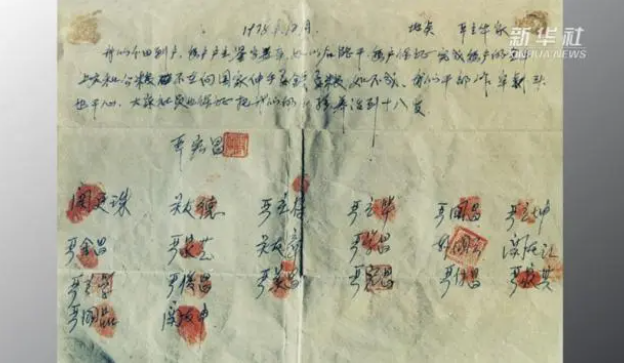 新华社
1978年12月 地点 严立华家
我们分田到户,每户户主签字盖章,如以后能干,每户保证完成每户的全年
上交和公粮,不在向国家伸手要钱要粮,如不成,我们干部作牢刹头
也干心,大家社员也保证把我们的小孩养活到十八岁
严宏昌
关廷珠 关友德 严立符 严立华 严国昌 严立坤
严金昌 严家芝 关友章 严学昌 韩国云 关友江
严立学 严俊昌 严美昌 严宏昌 严付昌 严家其
严国品 关友申